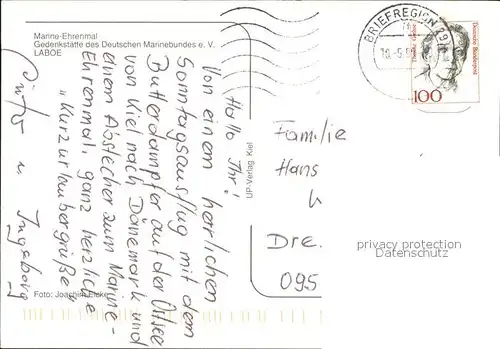 Marine-Ehrenmal
Gedenkstätte des Deutschen Marinebundes e. V.
LABOE
Hallo Ihr!
Von einem herrlichen
Sonntagsausflug mit dem
Butterdampfer auf der Ostsee
von Kiel nach Dänemark und
einem Abstecher zum Marine-
Ehrenmal, ganz herzliche
„Kurzurlaubergrüße"
u Ingeborg
Foto: Joachim
Verlag Kiel
BRIEFREGION 29
Deutsche Bundespost
100
Familie
Hans
Dre.
095
privacy protection
Datenschutz